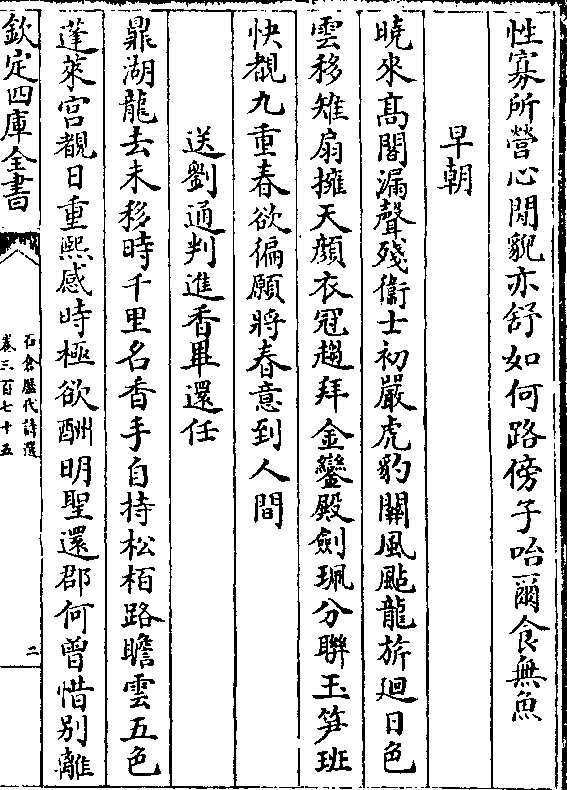 性寡所營心閒貌亦舒如何路傍子咍爾食無魚
早朝
曉來髙閣漏聲殘衞士初嚴虎豹闗風颭龍旂廻日色
雲移雉扇擁天顔衣冠趨拜金鑾殿劍珮分聨玉笋班
快覩九重春欲徧願將春意到人間
送劉通判進香畢還任
鼎湖龍去未移時千里名香手自持松栢路瞻雲五色
蓬萊宫覩日重熙感時極欲酬明聖還郡何曾惜别離
欽定四庫全書
石倉歴代詩選
卷三百七十五
二